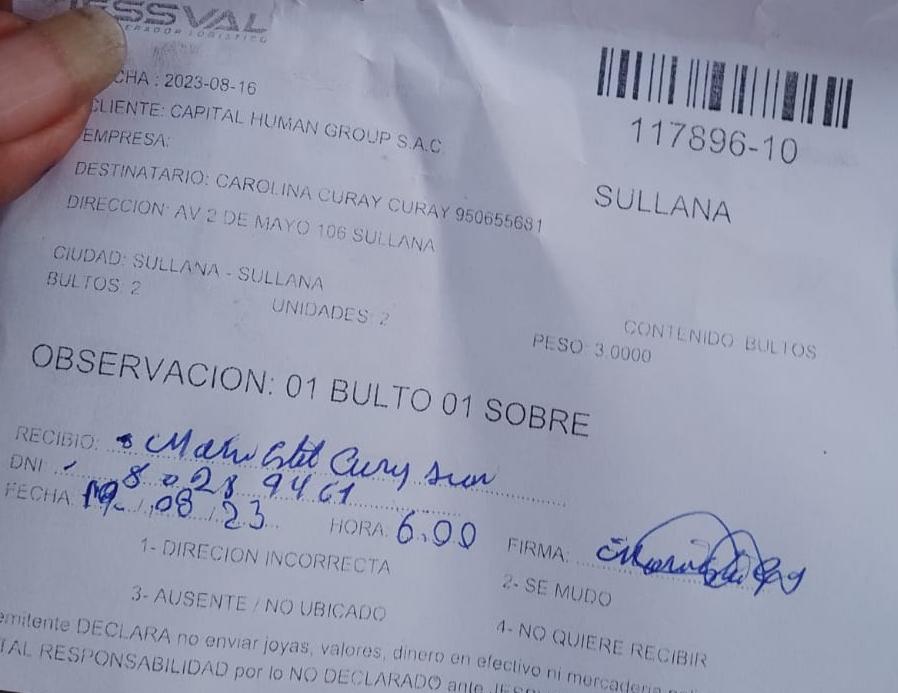 JESSVAL
OPERADOR LOGISTICO
CHA : 2023-08-16
CLIENTE: CAPITAL HUMAN GROUP S.A.C.
EMPRESA:
DESTINATARIO: CAROLINA CURAY CURAY 950655681
DIRECCION: AV 2 DE MAYO 106 SULLANA
CIUDAD: SULLANA - SULLANA
BULTOS: 2
UNIDADES: 2
117896-10
SULLANA
CONTENIDO BULTOS
PESO: 3.0000
OBSERVACION: 01 BULTO 01 SOBRE
RECIBIO:
DNI: 80289461
FECHA: 19/08/23 HORA: 6.00 FIRMA:
1- DIRECION INCORRECTA
2- SE MUDO
3- AUSENTE / NO UBICADO
4- NO QUIERE RECIBIR
emitente DECLARA no enviar joyas, valores, dinero en efectivo ni mercaderia
TAL RESPONSABILIDAD por lo NO DECLARADO ante